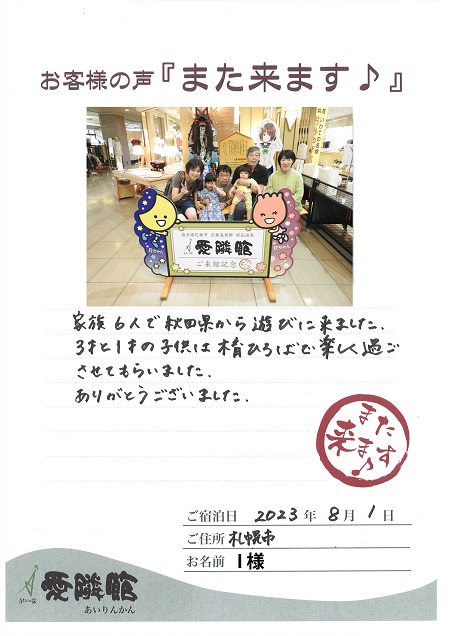 お客様の声『また来ます♪』
岩手県花巻市 花巻温泉郷 新鉛温泉
愛隣館
ご来館記念
家族6人で秋田県から遊びに来ました.
3才と1才の子供は木育ひろばで楽しく過ご
させてもらいました.
ありがとうございました.
また
来ます♪
ご宿泊日 2023年 8月 1日
ご住所 札幌市
お名前 I様
愛隣館
あいりんかん